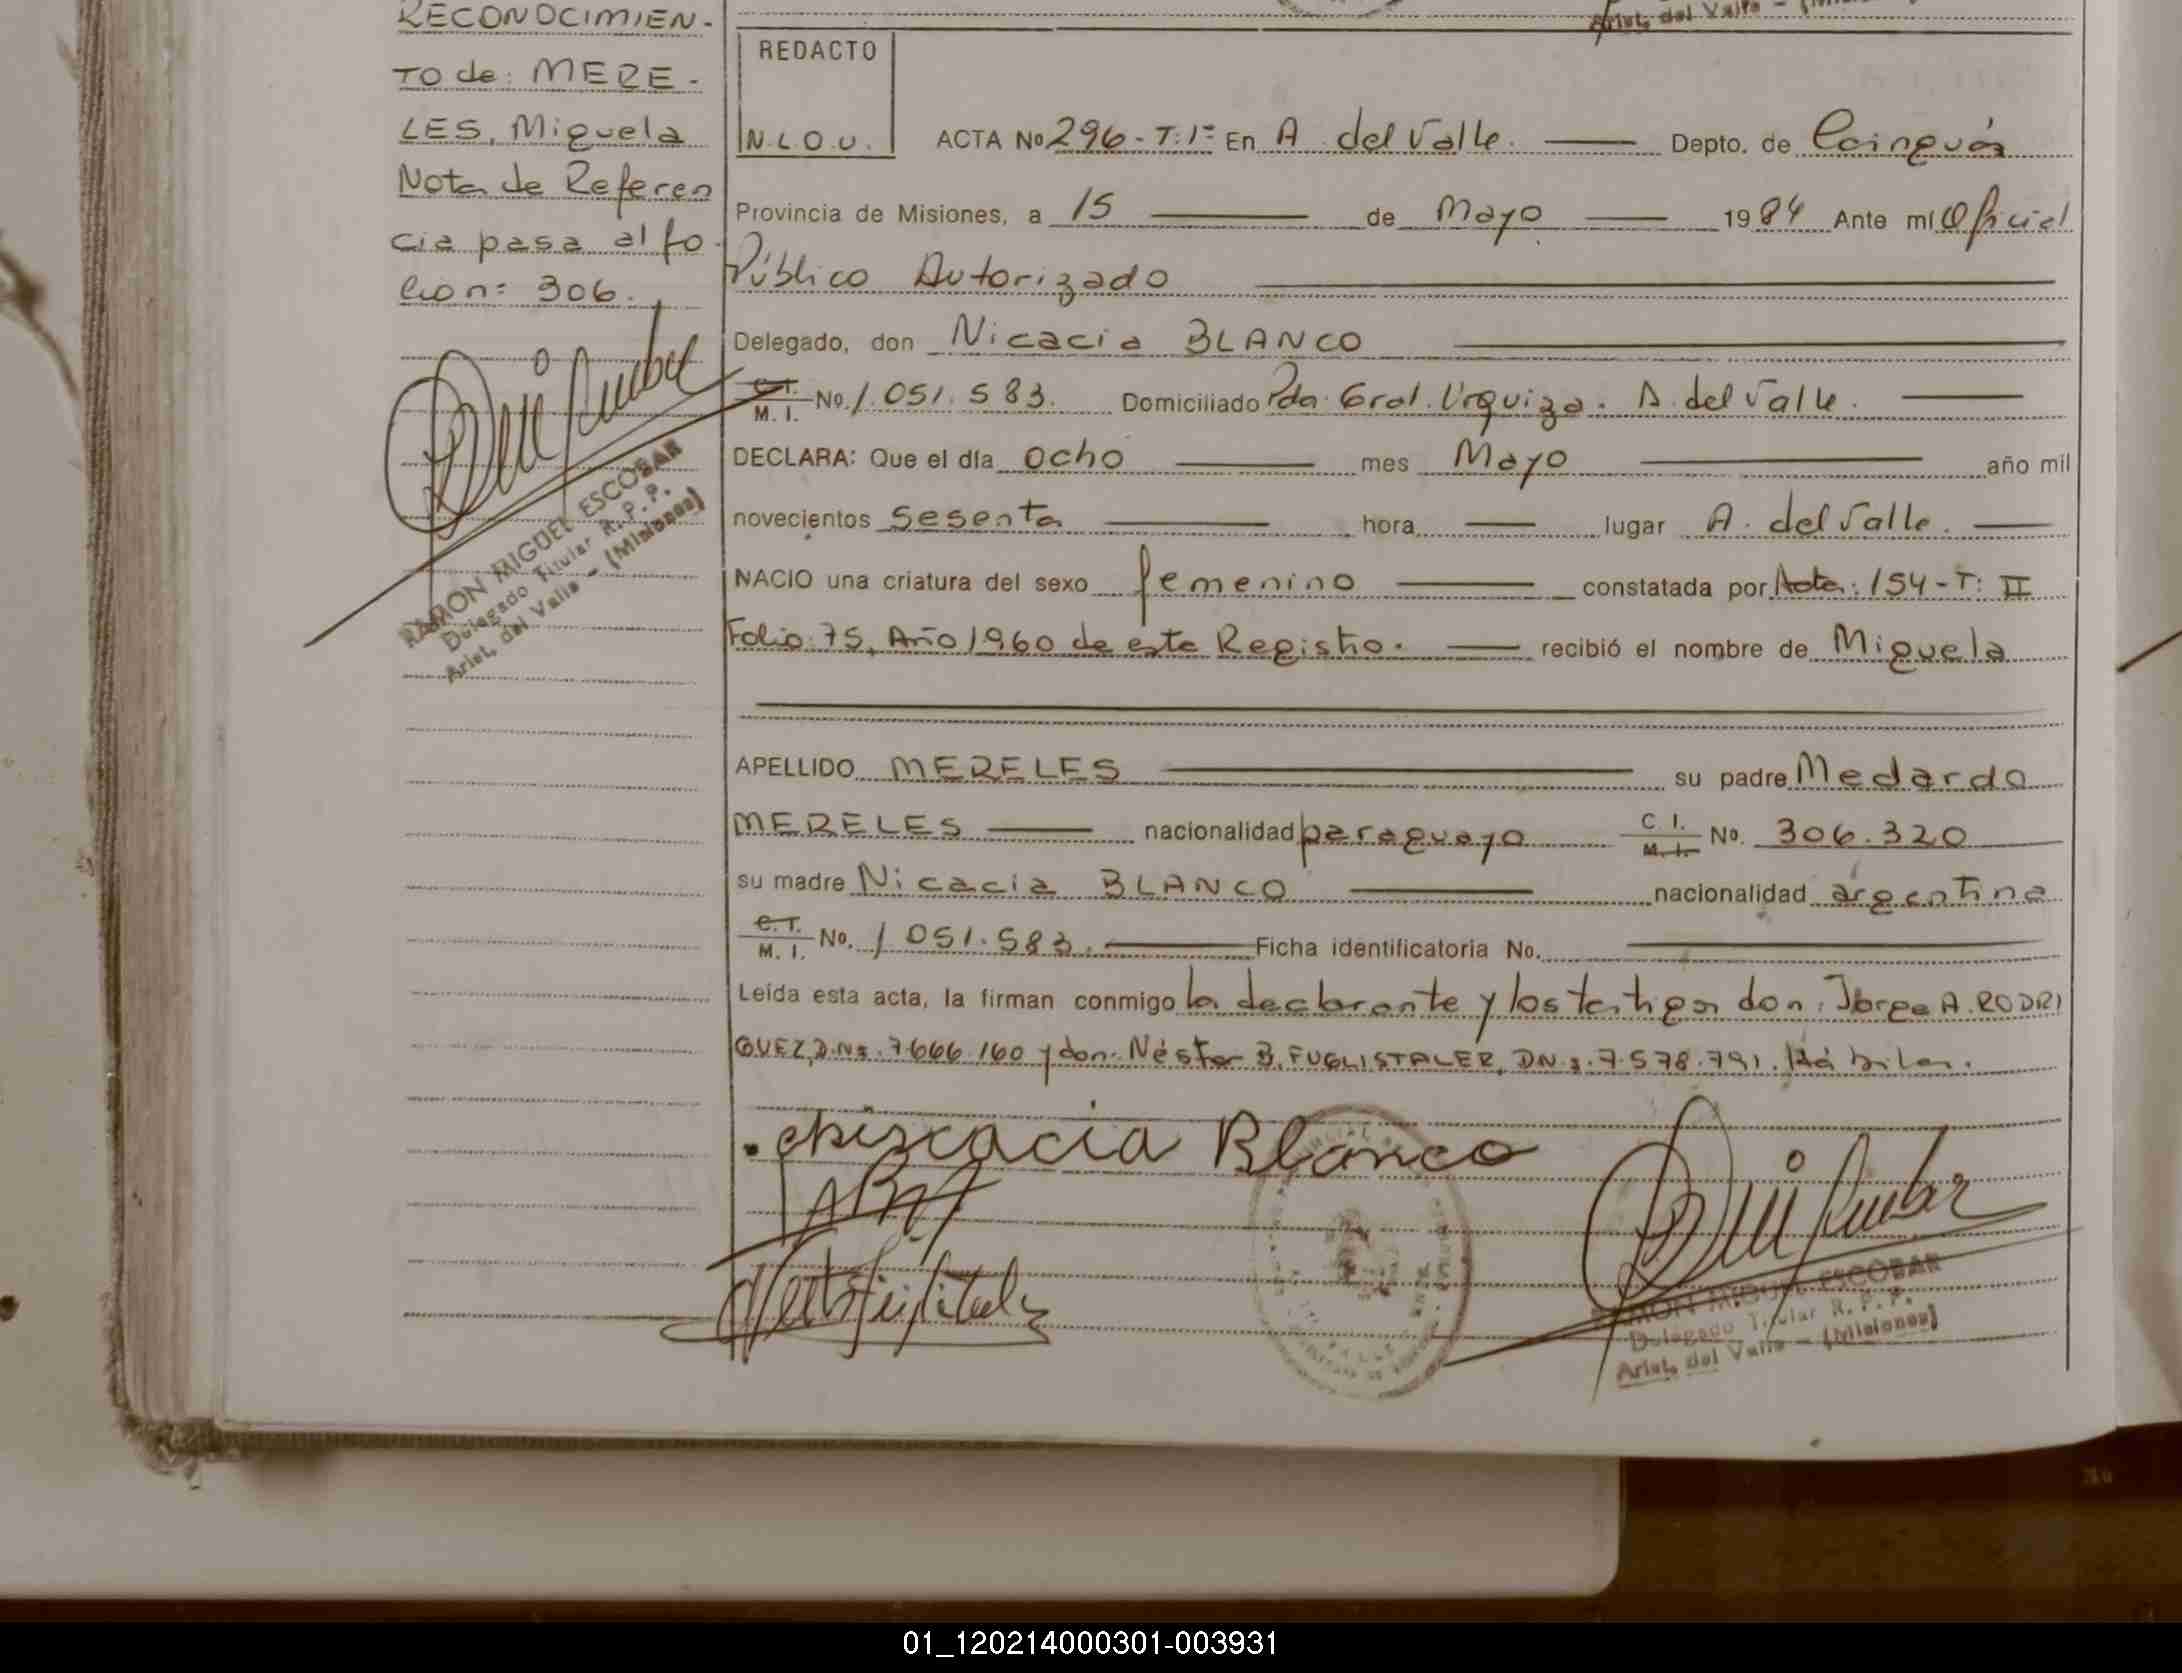 RECONOCIMIEN-
TO de: MERE-
LES, Miguela
Nota de Referen
cia pasa al fo-
lio n: 306.
RAMON MIGUEL ESCOBAR
Delegado Titular R. P. P.
Arist. del Valle - (Misiones)
Arist. del Valle - (Mi
REDACTO
N.L.O.U.
ACTA No 296-T:1º En A. del Valle. Depto. de Cainguás
Provincia de Misiones, a 15 de Mayo 1984 Ante mí Oficial
Público Autorizado
Delegado, don Nicacia BLANCO
C.I. M. I. No. 1.051.583. Domiciliado Pda. Gral. Urquiza. A. del Valle.
DECLARA: Que el día ocho mes Mayo año mil
novecientos sesenta hora lugar A. del Valle.
NACIO una criatura del sexo femenino constatada por Acta: 154-T: II
Folio: 75, Año 1960 de este Registro. recibió el nombre de Miguela
APELLIDO MERELES su padre Medardo
MERELES nacionalidad paraguayo C. I. M. I. No. 306.320
su madre Nicacia BLANCO nacionalidad argentina
C.I. M. I. No. 1.051.583. Ficha identificatoria No.
Leída esta acta, la firman conmigo la declarante y los testigos don: Jorge A. RODRI
GUEZ, D.N.I. 7.666.160 y don: Néstor B. FUGLISTALER, DNI. 7.578.791. Hábiles.
Blanco
RAMON MIGUEL ESCOBAR
Delegado Titular R. P. P.
Arist. del Valle - (Misiones)
01_120214000301-003931